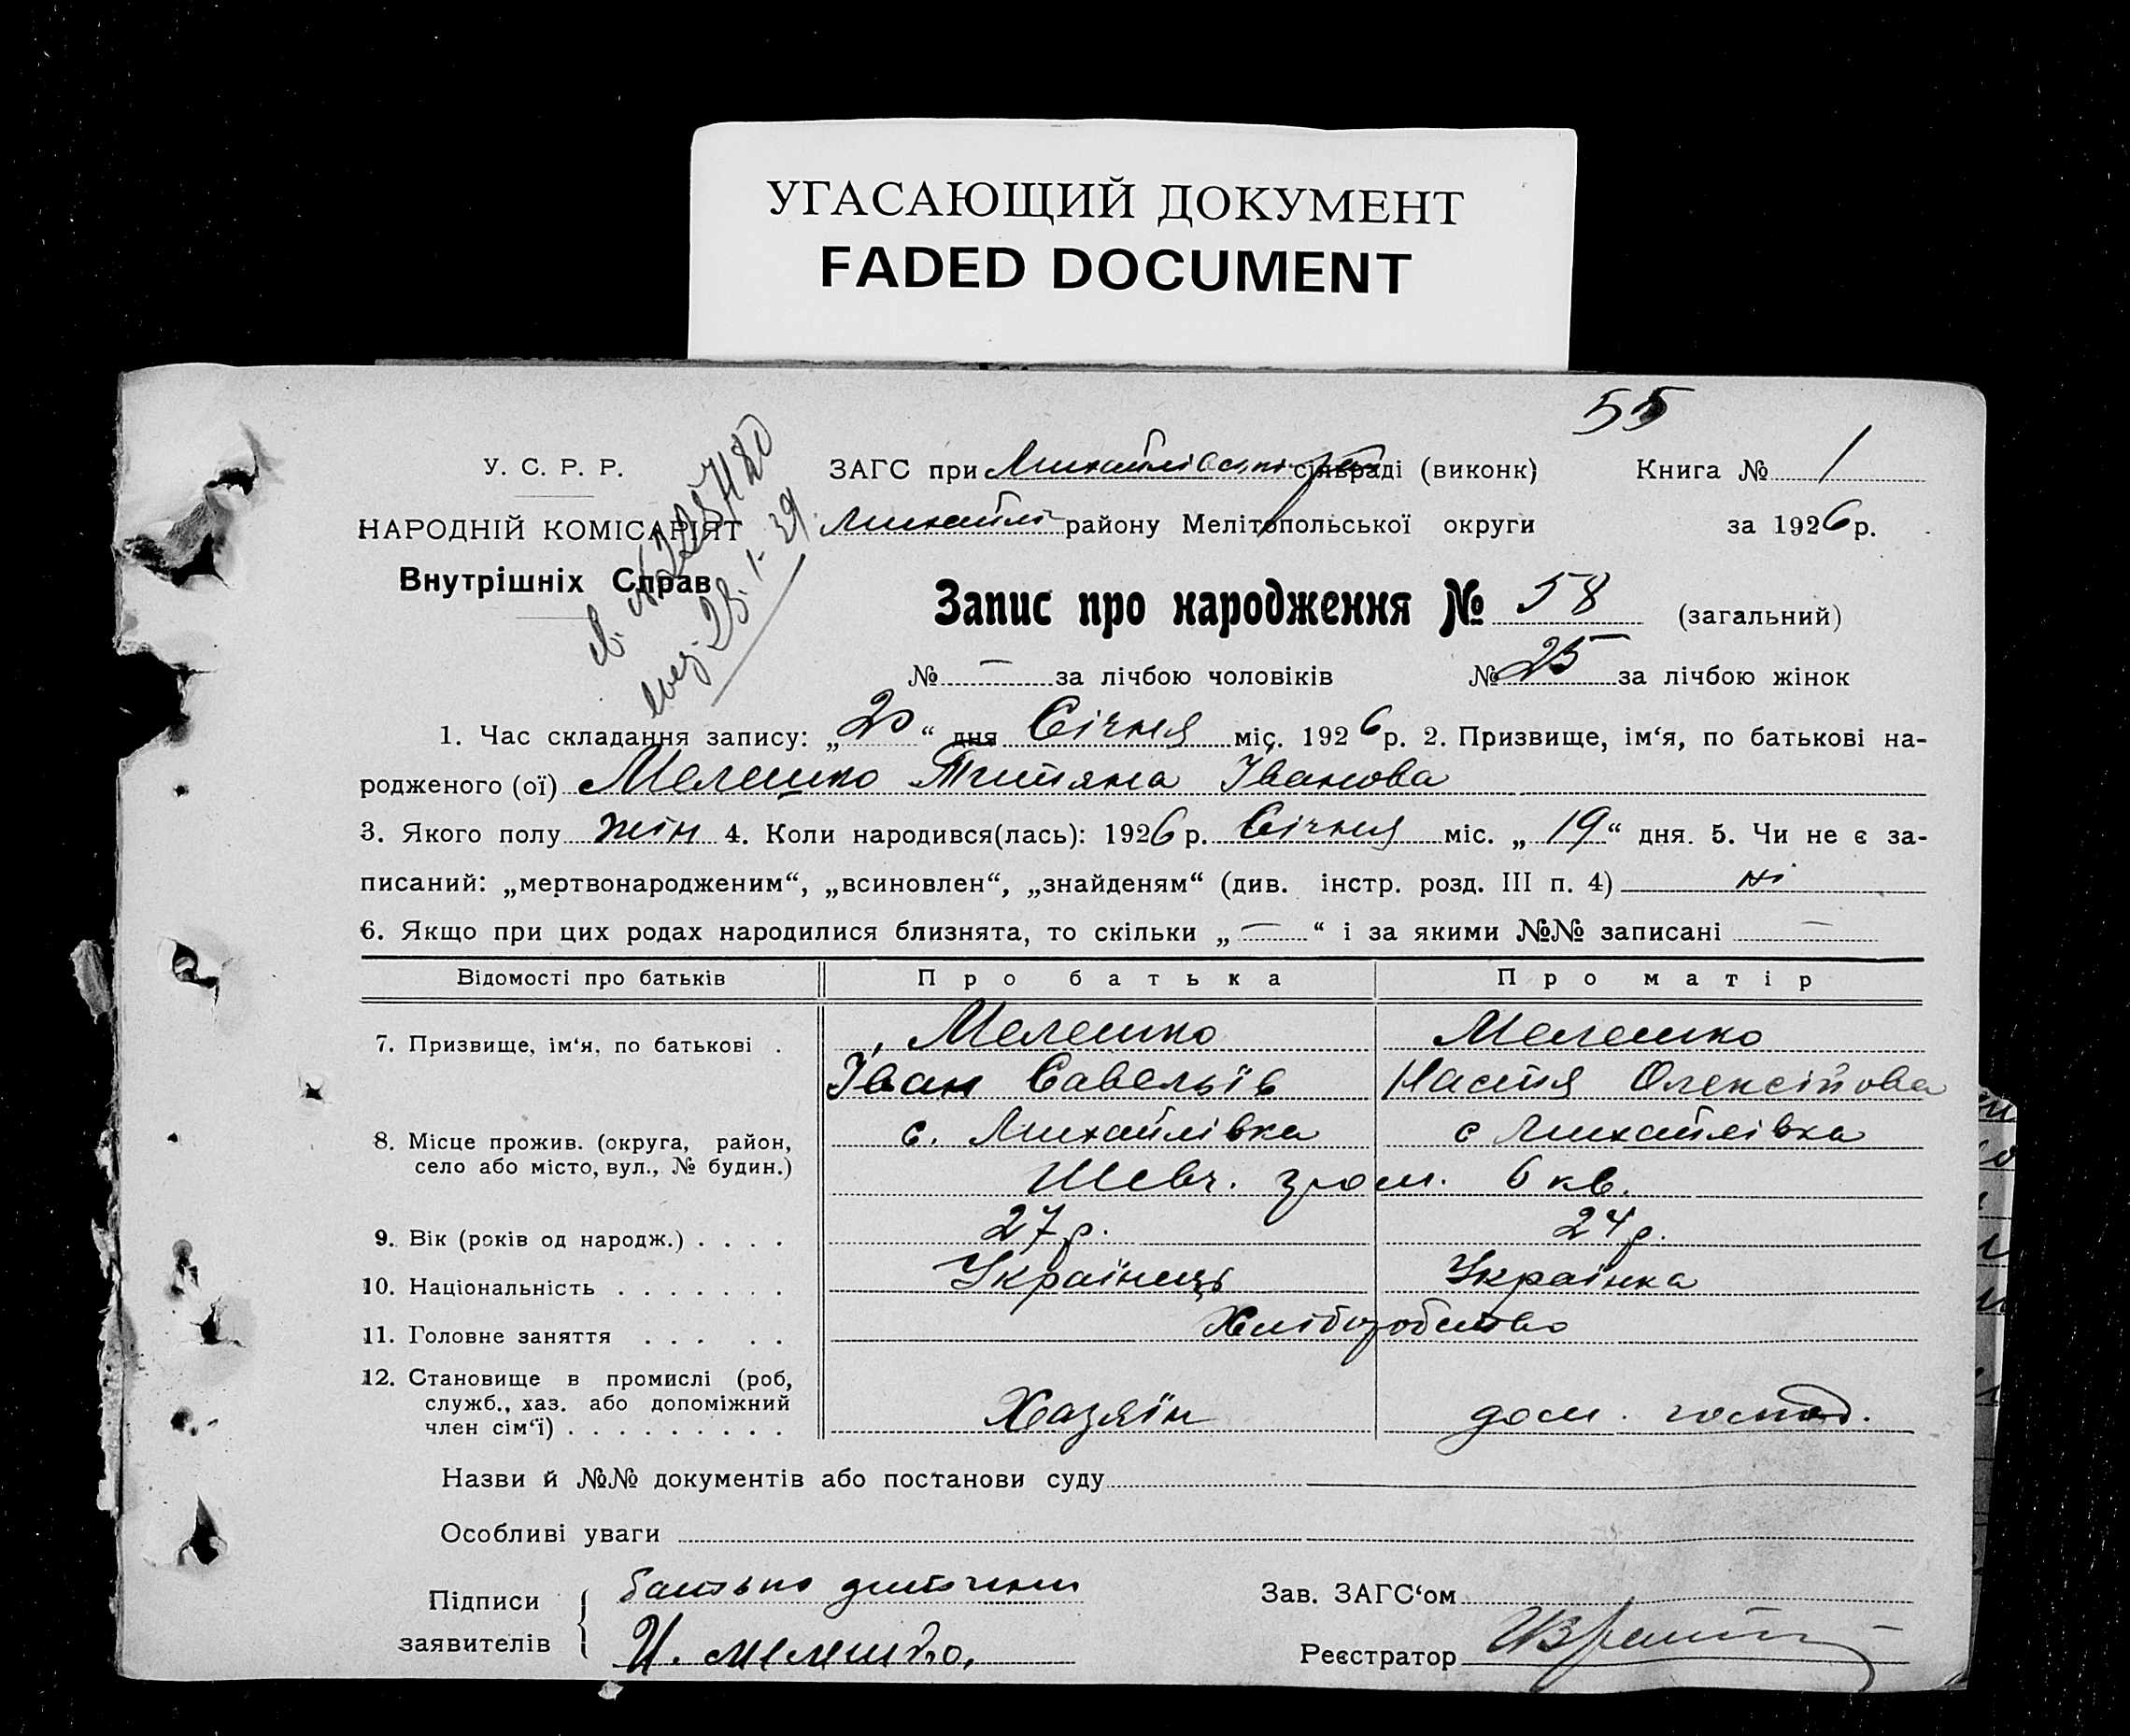 УГАСАЮЩИЙ ДОКУМЕНТ
FADED DOCUMENT
55
У. С. Р. Р.
НАРОДНІЙ КОМІСАРІЯТ
Внутрішніх Справ
23.1.39
ЗАГС при сільраді (виконк) Книга № 1
Михайлі району Мелітопольської округи за 1926 р.
Запис про народження № 58 (загальний)
№ — за лічбою чоловіків № 25 за лічбою жінок
1. Час складання запису: „20“ дня Січня міс. 1926 р. 2. Призвище, ім‘я, по батькові на-
родженого (ої) Мелешко Титяна Іванова
3. Якого полу жін 4. Коли народився(лась): 1926 р. Січня міс. „19“ дня. 5. Чи не є за-
писаний: „мертвонародженим“, „всиновлен“, „знайденям“ (див. інстр. розд. III п. 4) ні
6. Якщо при цих родах народилися близнята, то скільки „—“ і за якими №№ записані —
Відомості про батьків Про батька Про матір
7. Призвище, ім‘я, по батькові . Мелешко Мелешко
Іван Савельїв Настя Олексійова
8. Місце прожив. (округа, район, село або місто, вул., № будин.) с. Михайлівка с Михайлівка
Шевч. гром. 6 кв.
9. Вік (років од народж.) . . . . 27 р. 24 р.
10. Національність . . . . . . . Українець Українка
11. Головне заняття . . . . . Хліборобство
12. Становище в промислі (роб, служб., хаз. або допоміжний член сім‘ї) . . . . . . . . . Хазяїн дом. господ.
Назви й №№ документів або постанови суду
Особливі уваги
Підписи заявителів батько дитини
И. Мелешко,
Зав. ЗАГС‘ом
Реєстратор